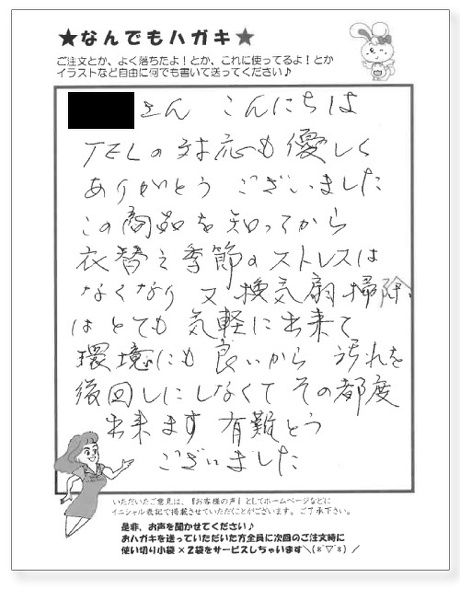 ★なんでもハガキ★
ご注文とか、よく落ちたよ！とか、これに使ってるよ！とか
イラストなど自由に何でも書いて送ってください♪
さん こんにちは
TELの対応も優しく
ありがとう ございました
この商品を知ってから
衣替え季節のストレスは
なくなり 又 換気扇掃除
はとても 気軽に出来て
環境にも 良いから 汚れを
後回しにしなくて その都度
出来ます 有難とう
ございました
いただいたご意見は、『お客様の声』としてホームページなどに
イニシャル表記で掲載させていただくことがございます。ご了承下さい。
是非、お声を聞かせてください♪
おハガキを送っていただいた方全員に次回のご注文時に
使い切り小袋×2袋をサービスしちゃいます＼(*^▽^*)／